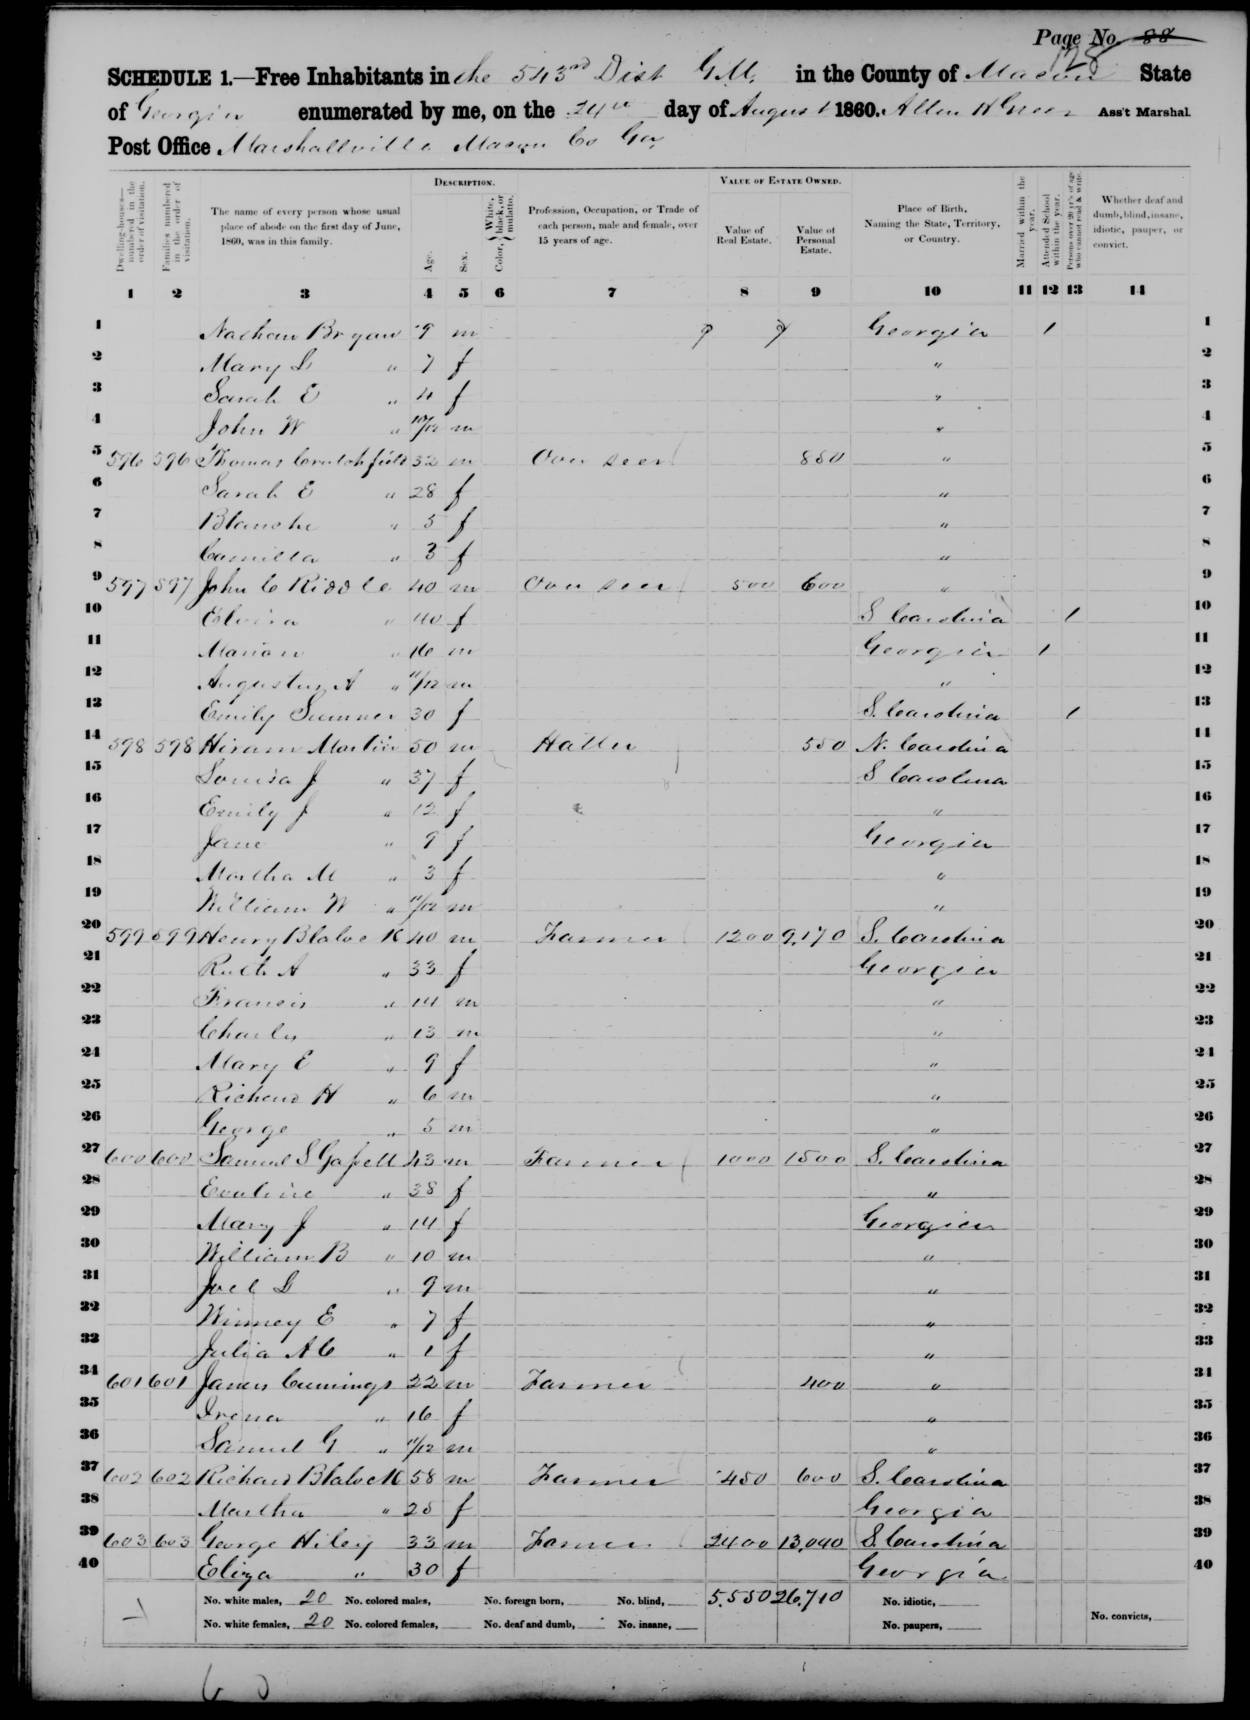 Page No. 88
128
SCHEDULE 1.—Free Inhabitants in the 543rd Dist G.M. in the County of Macon State
of Georgia enumerated by me, on the 24th day of August 1860. Allen H Greer Ass't Marshal.
Post Office Marshallville Macon Co Ga,
DESCRIPTION. VALUE OF ESTATE OWNED.
Dwelling-houses—numbered in the order of visitation. Families numbered in the order of visitation. The name of every person whose usual place of abode on the first day of June, 1860, was in this family. Age. Sex. Color, {White, black, or mulatto. Profession, Occupation, or Trade of each person, male and female, over 15 years of age. Value of Real Estate. Value of Personal Estate. Place of Birth, Naming the State, Territory, or Country. Married within the year. Attended School within the year. Persons over 20 y'rs of age who cannot read & write. Whether deaf and dumb, blind, insane, idiotic, pauper, or convict.
1 2 3 4 5 6 7 8 9 10 11 12 13 14
1 Nathan Bryan 9 m Georgia 1 1
2 Mary L " 7 f " 2
3 Sarah E " 4 f " 3
4 John W " 10/12 m " 4
5 596 596 Thomas Crutchfield 32 m Overseer 850 " 5
6 Sarah E " 28 f " 6
7 Blanche " 5 f " 7
8 Camilla " 3 f " 8
9 597 597 John C Riddle 40 m Overseer 500 600 " 9
10 Elvira " 40 f S Carolina 1 10
11 Marion " 16 m Georgia 1 11
12 Augustus A " 11/12 m " 12
13 Emily Sumner 30 f S. Carolina 1 13
14 598 598 Hiram Martin 50 m Hatter 550 N. Carolina 14
15 Louisa J " 37 f S Carolina 15
16 Emily J " 12 f " 16
17 Jane " 9 f Georgia 17
18 Martha M " 3 f " 18
19 William W " 11/12 m " 19
20 599 599 Henry Blalock 40 m Farmer 1200 9,170 S. Carolina 20
21 Ruth A " 33 f Georgia 21
22 Francis " 14 m " 22
23 Charles " 13 m " 23
24 Mary E " 9 f " 24
25 Richard H " 6 m " 25
26 George " 5 m " 26
27 600 600 Samuel S 43 m Farmer 1000 1500 S. Carolina 27
28 Eveline " 38 f " 28
29 Mary J " 14 f Georgia 29
30 William B " 10 m " 30
31 Joel L " 9 m " 31
32 Winney E " 7 f " 32
33 Julia A C " 1 f " 33
34 601 601 James Cummings 22 m Farmer 400 " 34
35 Irena " 16 f " 35
36 Samuel G " 11/12 m " 36
37 602 602 Richard Blalock 58 m Farmer 450 600 S. Carolina 37
38 Martha " 25 f Georgia 38
39 603 603 George Hiley 33 m Farmer 2400 13,040 S. Carolina 39
40 Eliza " 30 f Georgia 40
No. white males, 20 No. colored males, No. foreign born, No. blind, 5,550 26,710 No. idiotic,
No. white females, 20 No. colored females, No. deaf and dumb, No. insane, No. paupers, No. convicts,